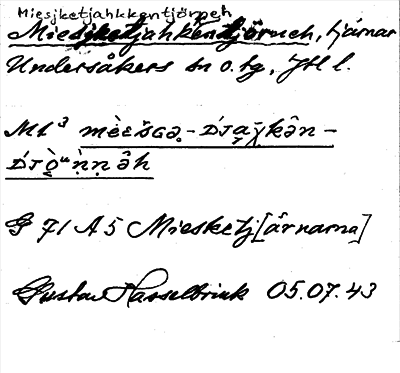 Miesjketjahkkentjörneh
Miesjketjahkentjörneh, tjärnar
Undersåkers sn o. tg, Jtl l.
Ml³ mèɛšɢə̣-D́ᴊa̤χ̣kə̂n-
D́ᴊò̤ᵘṇ̀ṇə̂h
G 71 A5 Miesketj[ärnarna]
Gustav Hasselbrink 05.07.43